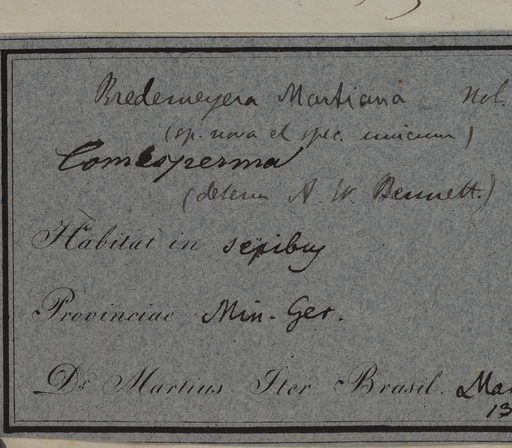 Bredemeyera Martiana Nob.
(sp. nova et spec. unicum)
Comesperma
(determ A. W. Bennett.)
Habitat in sepibus
Provinciae Min. Ger.
Dr. Martius Iter Brasil. Mar
13